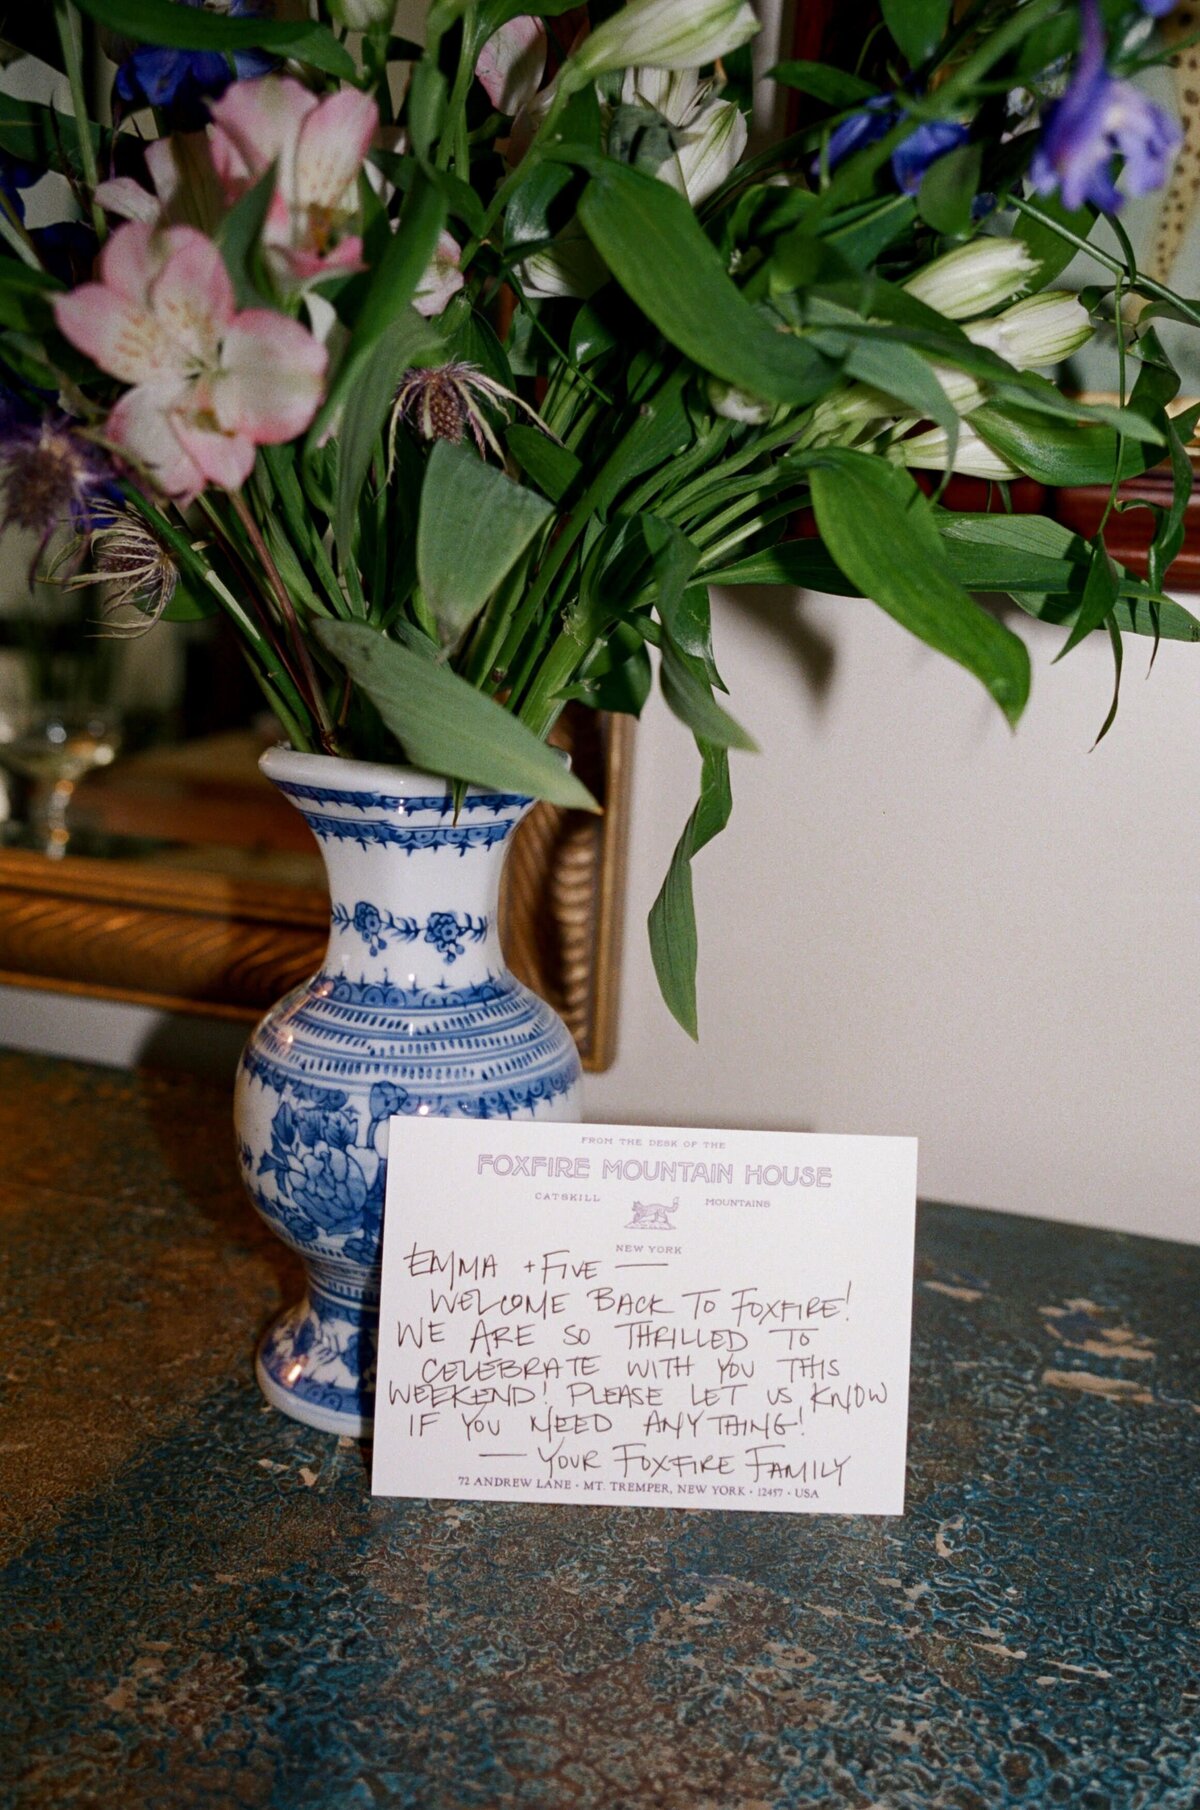 FROM THE DESK OF THE
FOXFIRE MOUNTAIN HOUSE
CATSKILL MOUNTAINS
NEW YORK
EMMA + FIVE —
WELCOME BACK TO FOXFIRE!
WE ARE SO THRILLED TO
CELEBRATE WITH YOU THIS
WEEKEND! PLEASE LET US KNOW
IF YOU NEED ANYTHING!
— YOUR FOXFIRE FAMILY
72 ANDREW LANE · MT. TREMPER, NEW YORK · 12457 · USA